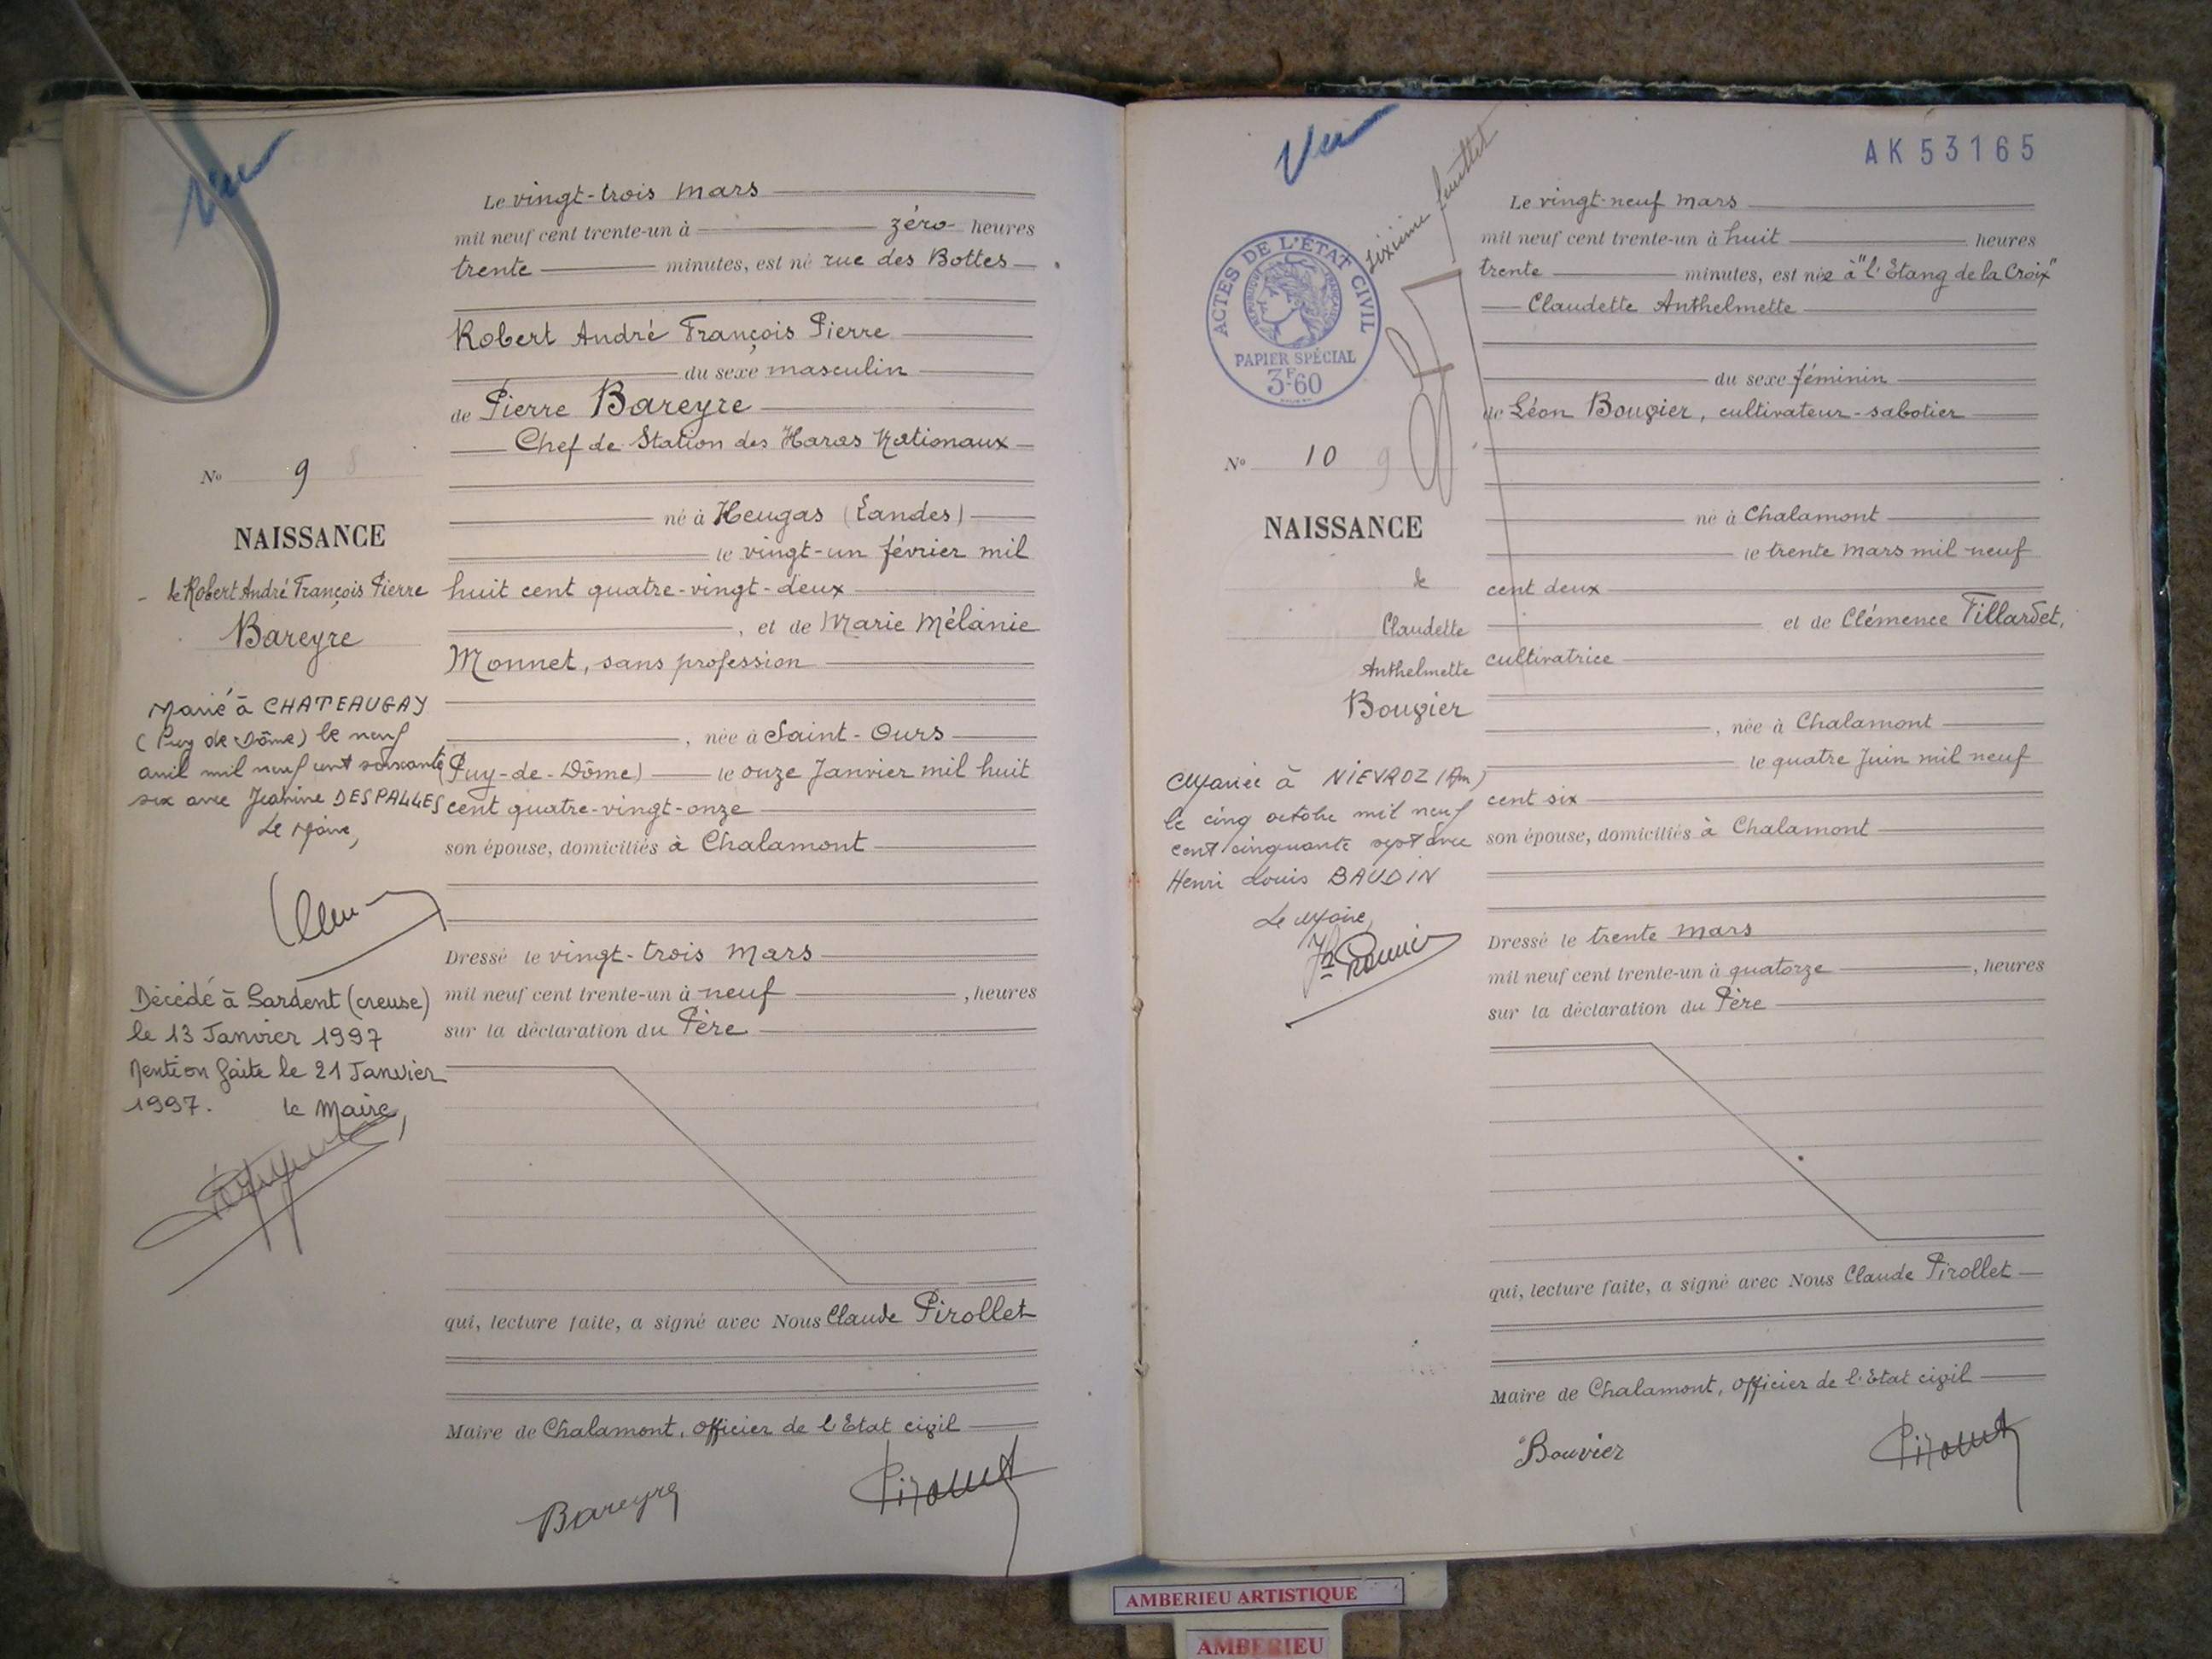 Vu
Le vingt-trois Mars
mil neuf cent trente-un à zéro heures
trente minutes, est né rue des Bottes
Robert André François Pierre
du sexe masculin
de Pierre Bareyre
Chef de Station des Haras Nationaux
né à Heugas (Landes)
le vingt-un février mil
huit cent quatre-vingt-deux
, et de Marie Mélanie
Monnet, sans profession
, née à Saint-Ours
(Puy-de-Dôme) le onze Janvier mil huit
cent quatre-vingt-onze
son épouse, domiciliés à Chalamont
Dressé le vingt-trois Mars
mil neuf cent trente-un à neuf , heures
sur la déclaration du Père
qui, lecture faite, a signé avec Nous Claude Pirollet
Maire de Chalamont, Officier de l'Etat civil
Bareyre
No 9 8
NAISSANCE
de Robert André François Pierre
Bareyre
Marié à CHATEAUGAY
(Puy de Dôme) le neuf
avril mil neuf cent soixante
six avec Jeanine DESPALLES
Le Maire,
Décédé à Sardent (creuse)
le 13 Janvier 1997
Mention faite le 21 Janvier
1997. le Maire,
Vu
Sixième feuillet
AK 53165
ACTES DE L'ÉTAT CIVIL
RÉPUBLIQUE FRANÇAISE
PAPIER SPÉCIAL
3F60
Le vingt-neuf mars
mil neuf cent trente-un à huit heures
trente minutes, est née à "l'Etang de la Croix"
Claudette Anthelmette
du sexe féminin
de Léon Bouvier, cultivateur-sabotier
né à Chalamont
le trente Mars mil neuf
cent deux
et de Clémence Tillardet,
cultivatrice
, née à Chalamont
le quatre Juin mil neuf
cent six
son épouse, domiciliés à Chalamont
Dressé le trente Mars
mil neuf cent trente-un à quatorze , heures
sur la déclaration du Père
qui, lecture faite, a signé avec Nous Claude Pirollet
Maire de Chalamont, Officier de l'Etat civil
Bouvier
No 10 9
NAISSANCE
de
Claudette
Anthelmette
Bouvier
Mariée à NIEVROZ (Ain)
le cinq octobre mil neuf
cent cinquante sept avec
Henri Louis BAUDIN
Le Maire,
AMBERIEU ARTISTIQUE
AMBERIEU